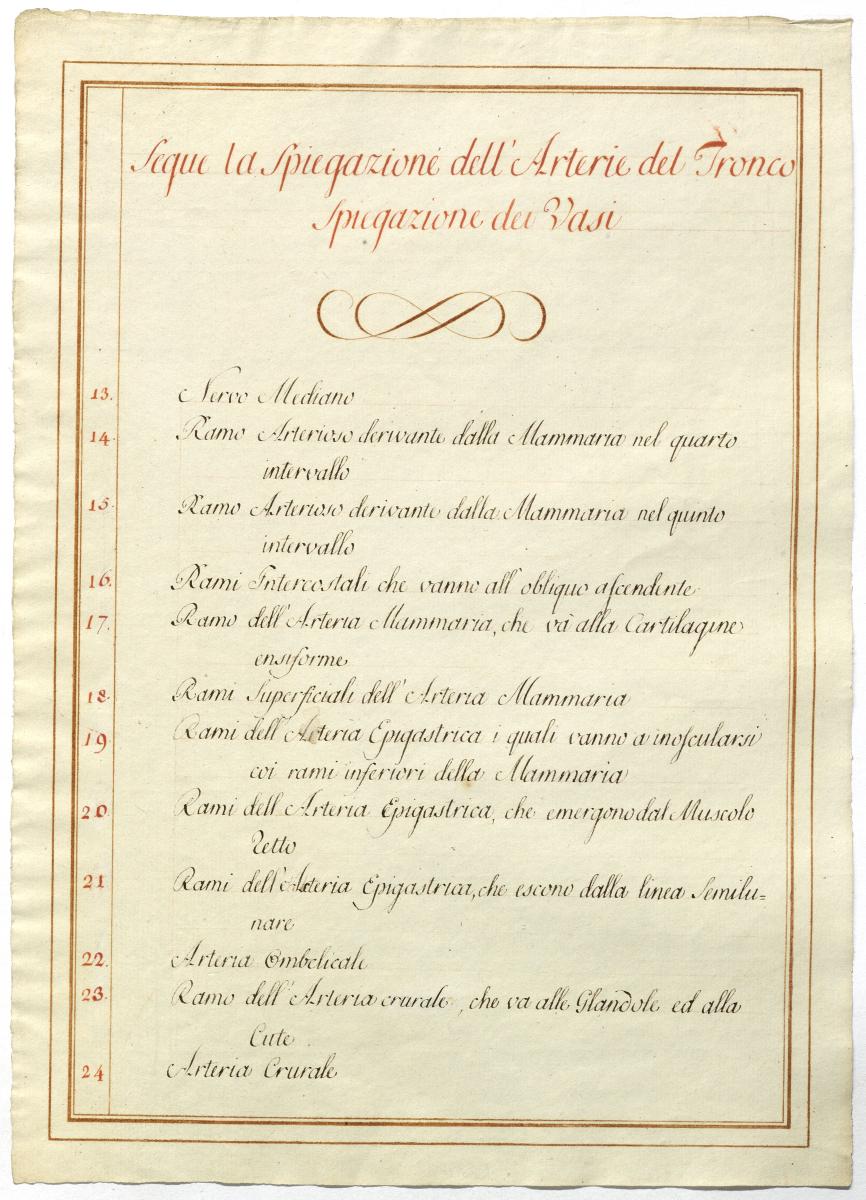 Segue la Spiegazione dell'Arterie del Tronco
Spiegazione dei Vasi
13. Nervo Mediano
14. Ramo Arterioso derivante dalla Mammaria nel quarto
intervallo
15. Ramo Arterioso derivante dalla Mammaria nel quinto
intervallo
16. Rami Intercostali che vanno all'obliquo ascendente
17. Ramo dell'Arteria Mammaria, che và alla Cartilagine
ensiforme
18. Rami Superficiali dell'Arteria Mammaria
19. Rami dell'Arteria Epigastrica i quali vanno a inoscularsi
coi rami inferiori della Mammaria
20. Rami dell Arteria Epigastrica, che emergono dal Muscolo
Retto
21 Rami dell'Arteria Epigastrica, che escono dalla linea Semilu=
nare
22. Arteria Ombelicale
23. Ramo dell'Arteria crurale, che va alle Glandole ed alla
Cute
24 Arteria Crurale